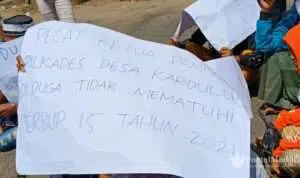 PECAT KETUA PANIT
PILKADES DESA KARDULUK
DIDUGA TIDAK MEMATUHI
PERBUP 15 TAHUN 2021